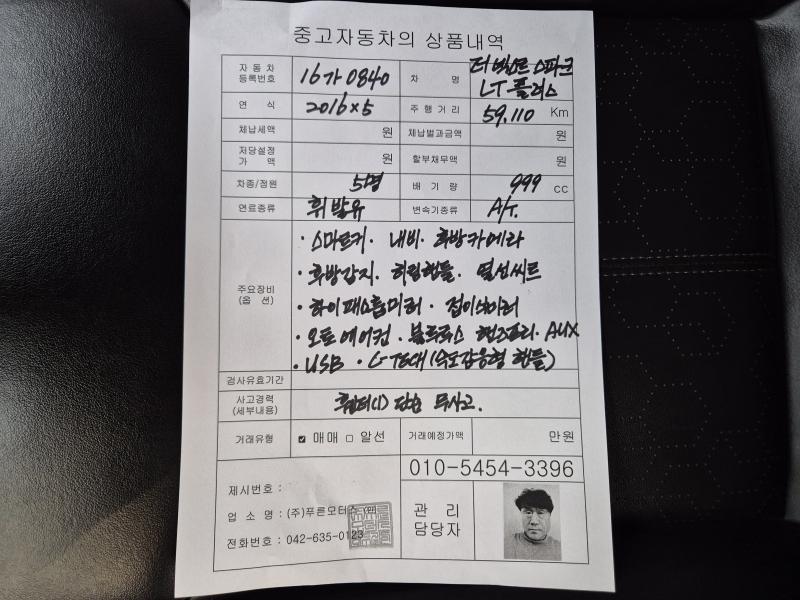 중고자동차의 상품내역
자 동 차 등록번호 16가0840 차 명 더 넥스트 스파크 LT플러스
연 식 2016×5 주 행 거 리 59,110 Km
체납세액 원 체납벌과금액 원
저당설정 가 액 원 할부채무액 원
차종/정원 5명 배 기 량 999 cc
연료종류 휘발유 변속기종류 A/T.
주요장비 (옵 션)
· 스마트키 · 내비 · 후방카메라
· 후방감지 · 히팅핸들 · 열선씨트
· 하이패스룸미러 · 접이식미러
· 오토에어컨 · 블루투스 핸즈프리 · AUX
· USB · C-TECH (속도감응형 핸들)
검사유효기간
사고경력 (세부내용) 휀더(1) 단순 무사고.
거래유형 ☑ 매매 □ 알선 거래예정가액 만원
010-5454-3396
제시번호 :
업 소 명 : (주)푸른모터스
전화번호 : 042-635-0123
관 리 담당자